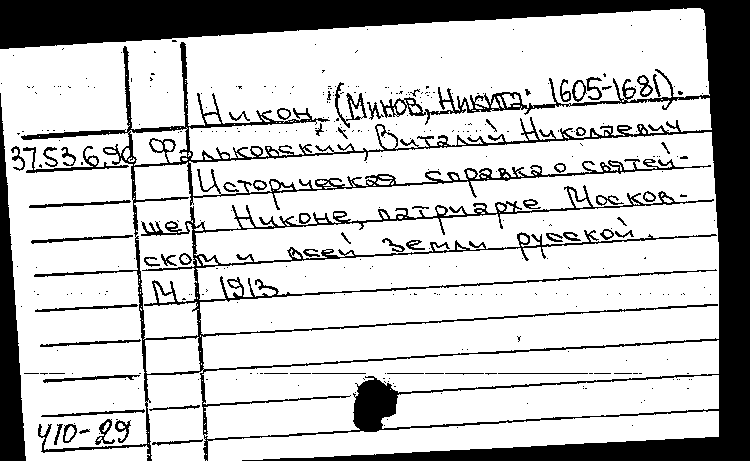 Никон, (Минов, Никита; 1605-1681).
37.53.6.96 Фальковский, Виталий Николаевич
Историческая справка о святей-
шем Никоне, патриархе Москов-
ском и всей земли русской.
М., 1913.
410-29